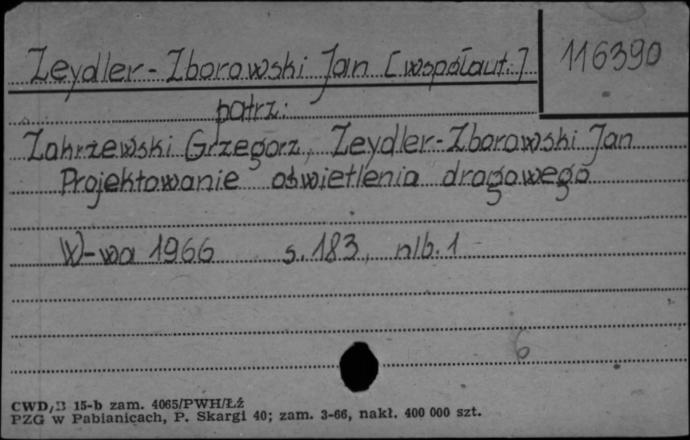 Zeydler-Zborowski Jan [współaut.]
116390
patrz:
Zakrzewski Grzegorz, Zeydler-Zborowski Jan
Projektowanie oświetlenia drogowego
W-wa 1966 s. 183, nlb. 1
6
CWD/B 15-b zam. 4065/PWH/Łź
PZG w Pabianicach, P. Skargi 40; zam. 3-66, nakł. 400 000 szt.